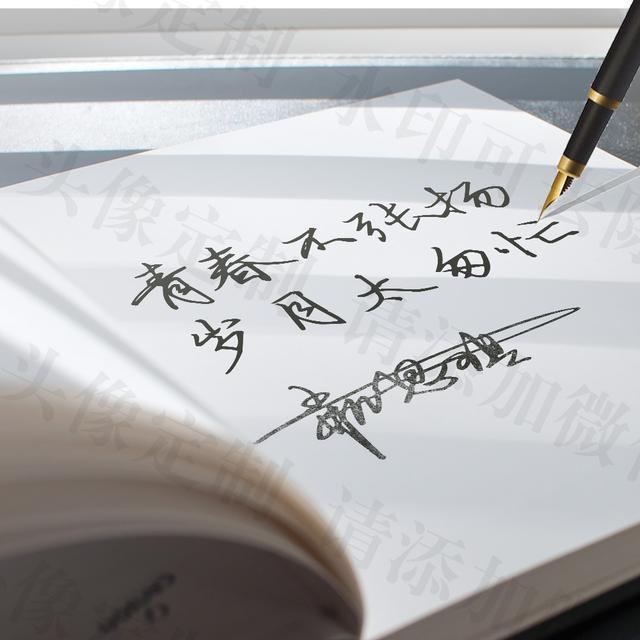 像定制 水印可去除
青春不张扬
岁月太匆忙
头像定制 请添加微信
头像定制 请添加